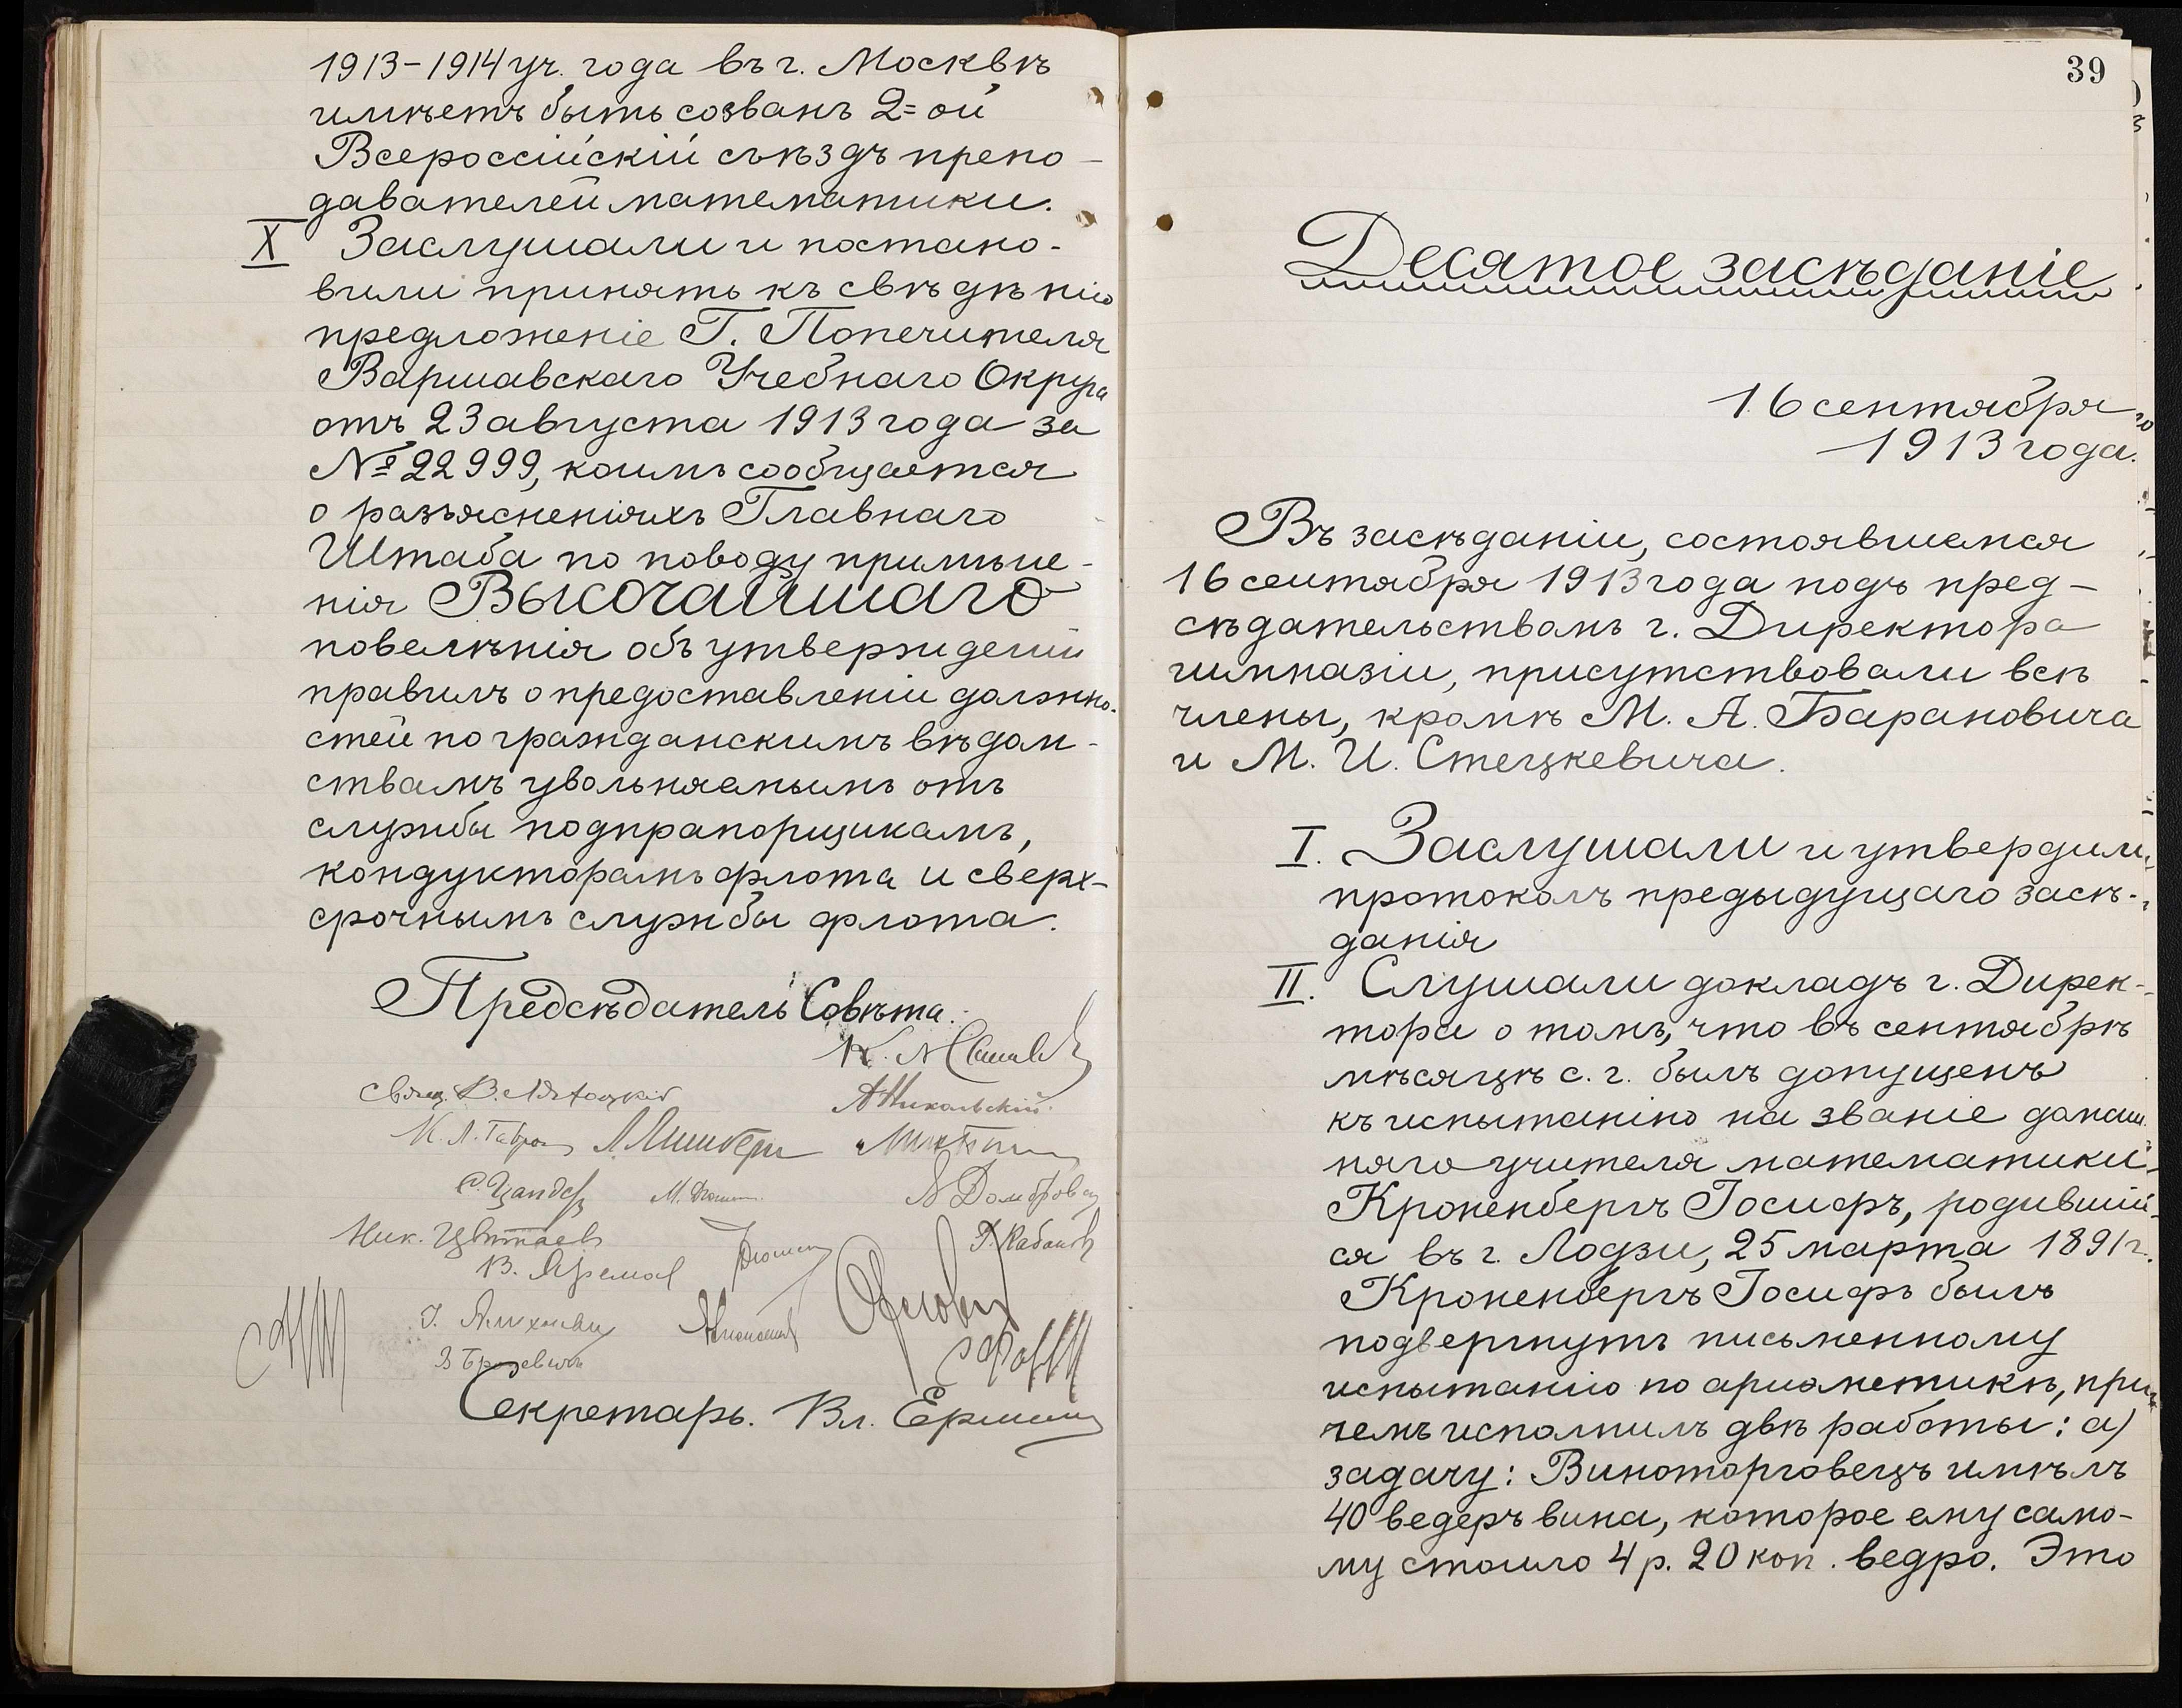 1913-1914 уч. года въ г. Москвѣ
имѣетъ быть созванъ 2=ой
Всероссійскій съѣздъ препо-
давателей математики.
X Заслушали и постано-
вили принять къ свѣдѣнію
предложеніе Г. Попечителя
Варшавскаго Учебнаго Округа
отъ 23 августа 1913 года за
№ 22999, коимъ сообщается
о разъясненіяхъ Главнаго
Штаба по поводу примѣне-
нія Высочайшаго
повелѣнія объ утвержденіи
правилъ о предоставленіи должно-
стей по гражданскимъ вѣдом-
ствамъ увольняемымъ отъ
службы подпрапорщикамъ,
кондукторамъ флота и сверх-
срочнымъ службы флота.
Предсѣдатель Совѣта.
К. А.
Свящ. В.
АНикольскій.
К. Л. Гаврон
С. Цандер М. А Домбровск
Ник. Цвѣтаевъ Г. Кабановъ
В.
І.
Секретарь. Вл. Ермин
39
Десятое засѣданіе
16 сентября
1913 года.
Въ засѣданіи, состоявшемся
16 сентября 1913 года подъ пред-
сѣдательствомъ г. Директора
гимназіи, присутствовали всѣ
члены, кромѣ М. А. Барановича
и М. И. Стецкевича.
I. Заслушали и утвердили
протоколъ предыдущаго засѣ-
данія
II. Слушали докладъ г. Дирек-
тора о томъ, что въ сентябрѣ
мѣсяцѣ с. г. былъ допущенъ
къ испытанію на званіе домаш
няго учителя математики
Кроненбергъ Іосифъ, родивший-
ся въ г. Лодзи, 25 марта 1891 г.
Кроненбергъ Іосифъ былъ
подвергнутъ письменному
испытанію по ариѳметикѣ, при
чемъ исполнилъ двѣ работы: а)
задачу: Виноторговецъ имѣлъ
40 ведеръ вина, которое ему само-
му стоило 4 р. 20 коп. ведро. Это